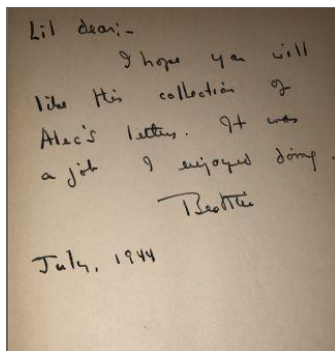 Lil dear:-
I hope you will
like this collection of
Alec's letters. It was
a job I enjoyed doing.
Beattie
July, 1944